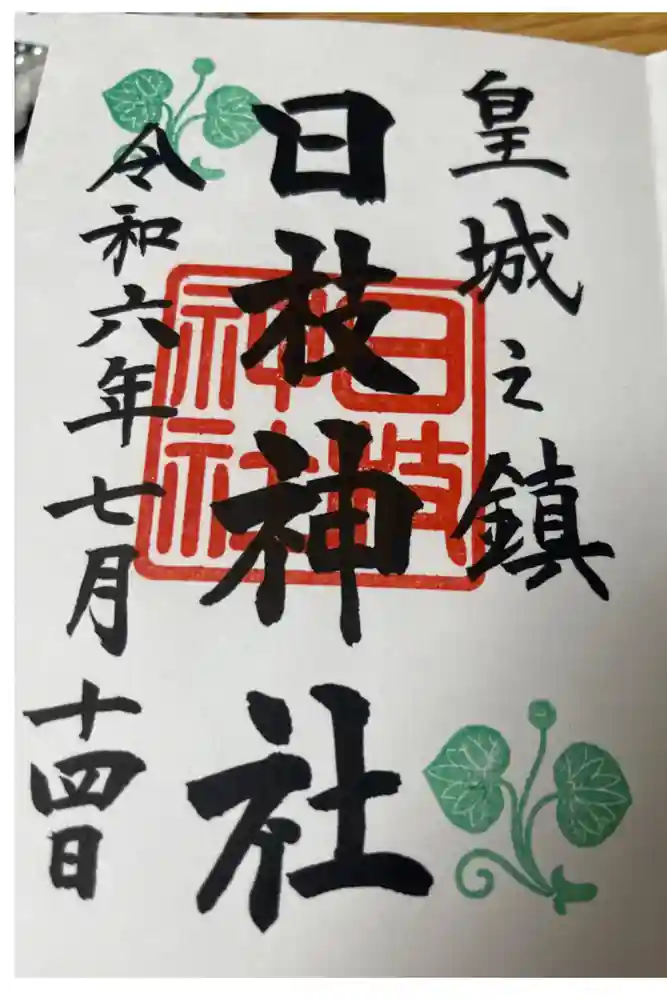 皇城之鎮
日枝神社
日枝
神社
令和六年七月十四日